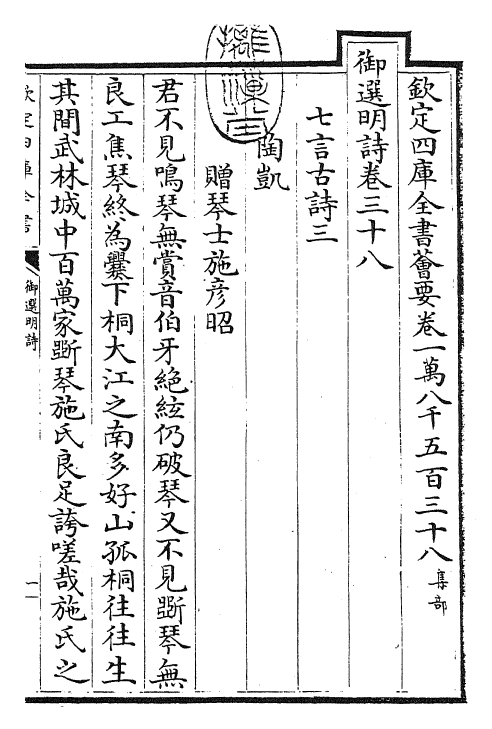 欽定四庫全書薈要卷一萬八千五百三十八 集部
御選明詩卷三十八
七言古詩三
陶凱
贈琴士施彦昭
君不見鳴琴無賞音伯牙絶絃仍破琴又不見斵琴無
良工焦琴終為爨下桐大江之南多好山孤桐往往生
其間武林城中百萬家斵琴施氏良足誇嗟哉施氏之
欽定四庫全書
御選明詩
一